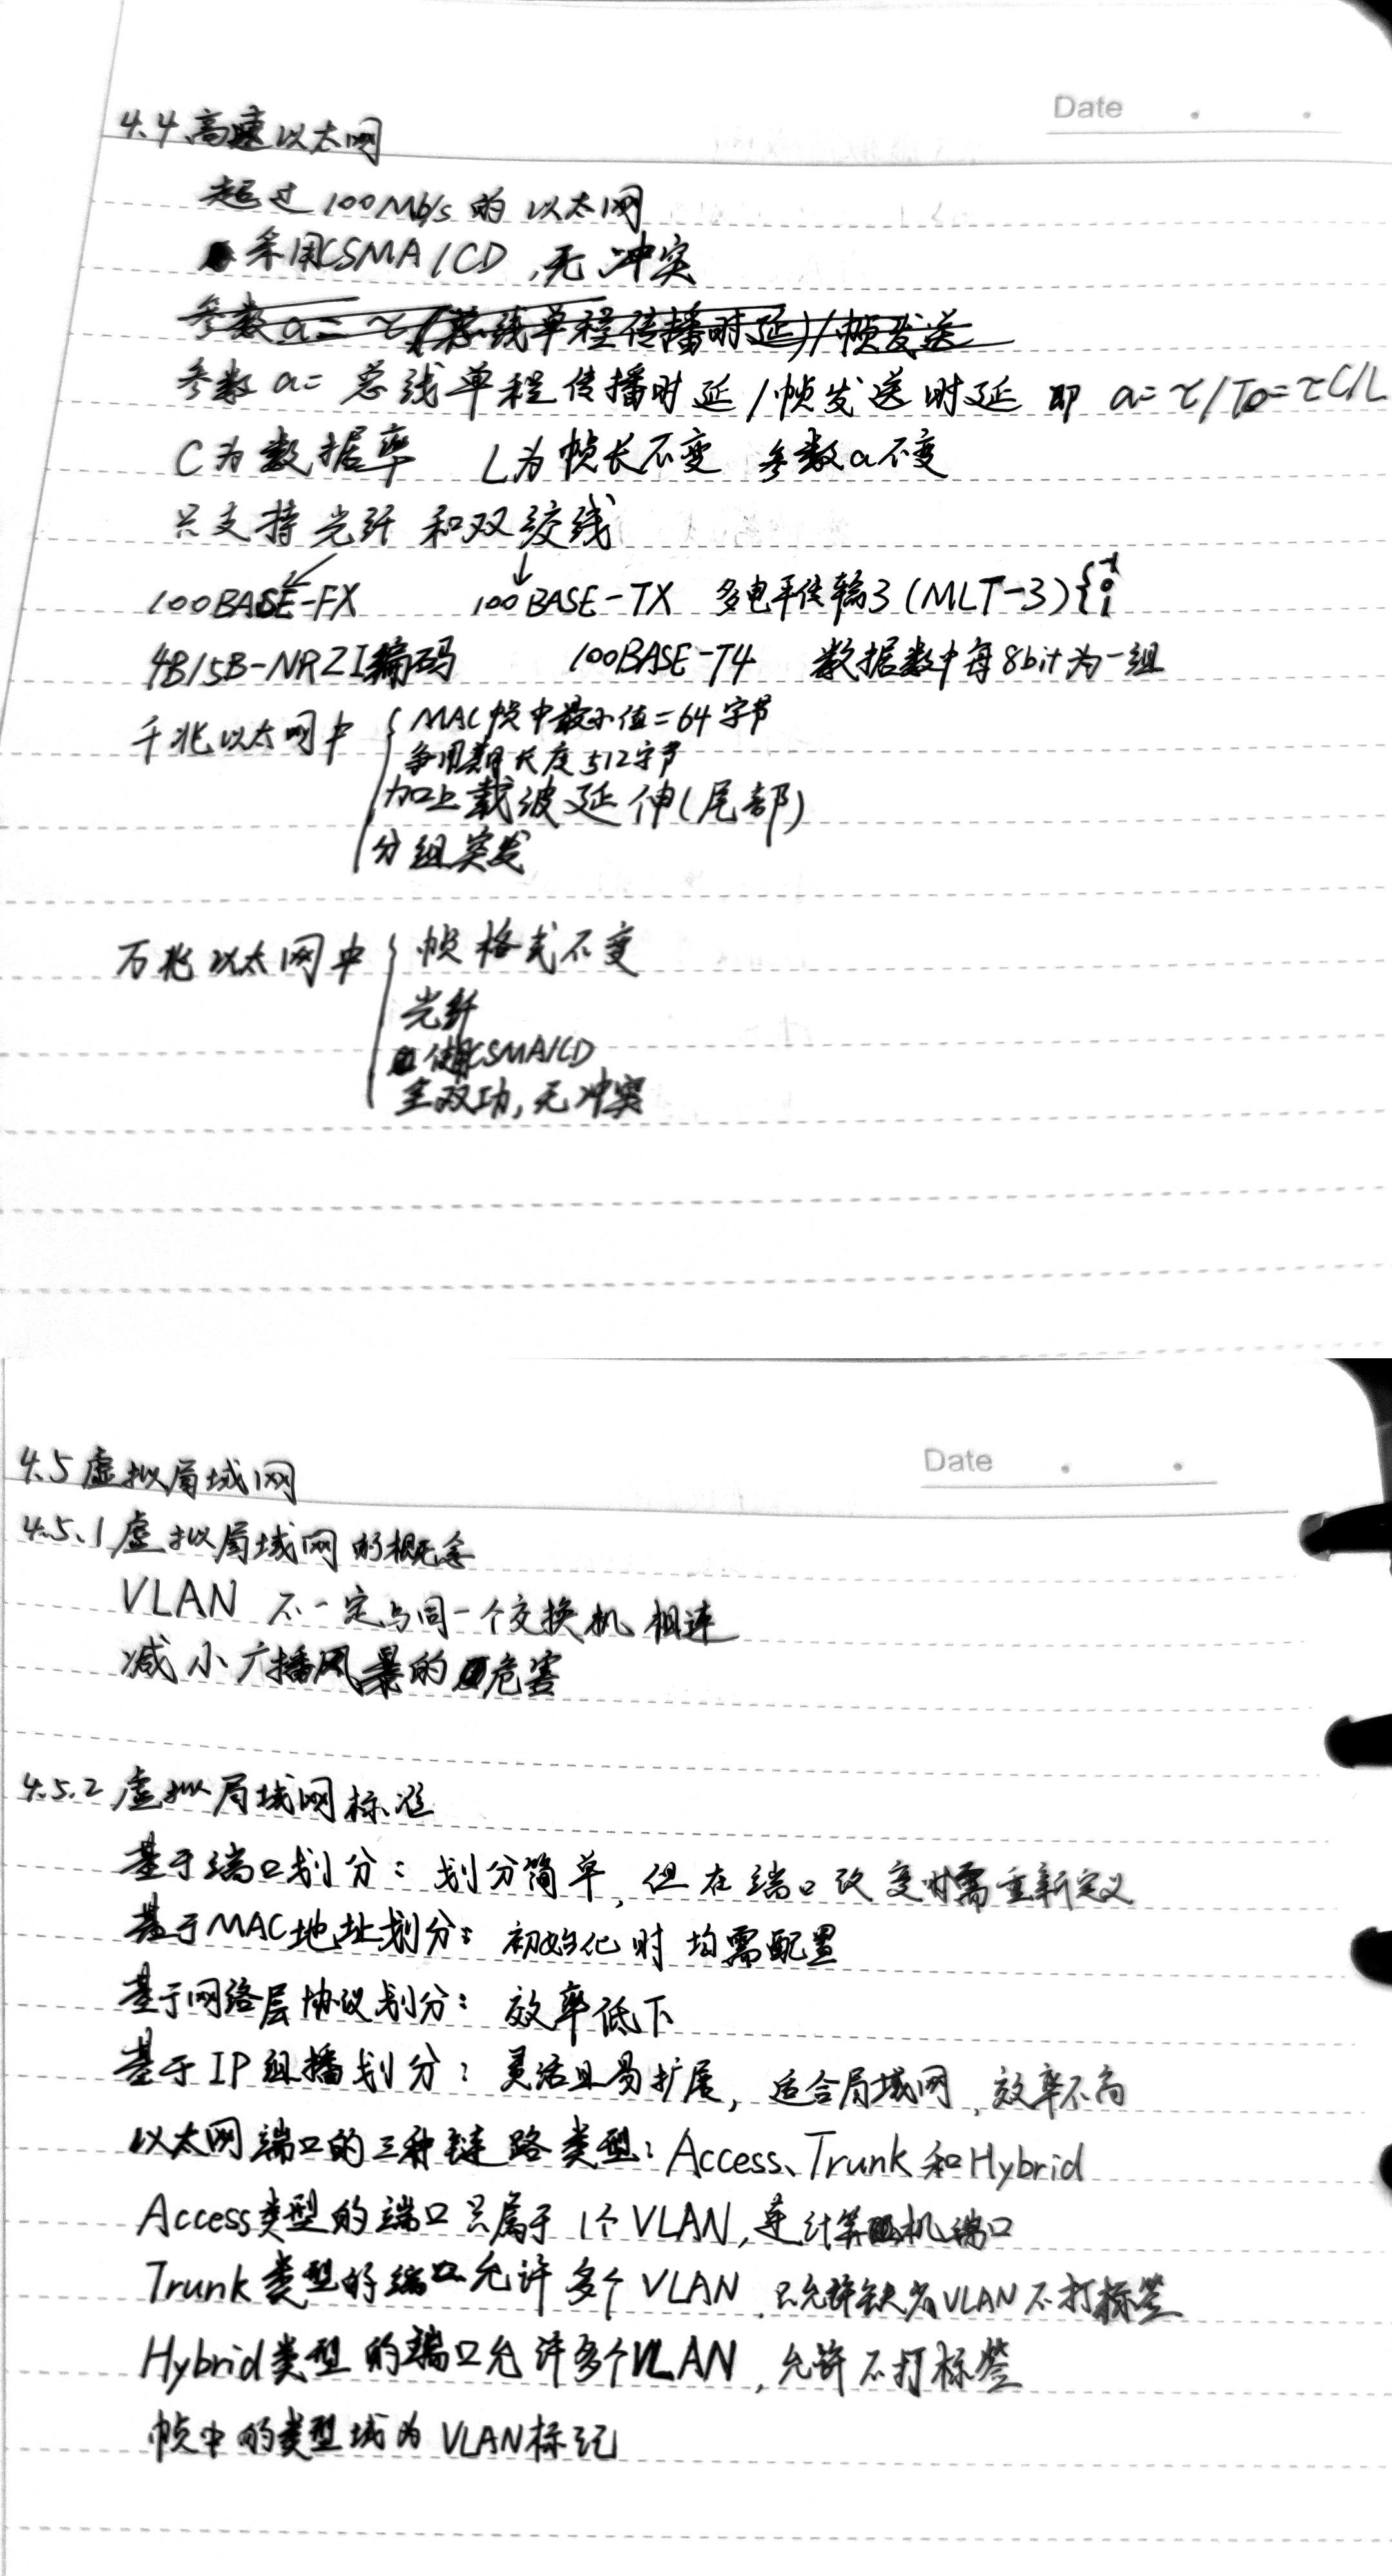 Date
4.4 高速以太网
超过100Mb/s的以太网
采用CSMA/CD,无冲突
参数a= τ(总线单程传播时延)/帧发送
参数a= 总线单程传播时延/帧发送时延 即 a=τ/T0=τC/L
C为数据率 L为帧长不变 参数a不变
只支持光纤和双绞线
100BASE-FX 100BASE-TX 多电平传输3(MLT-3){-1 0 1
4B/5B-NRZI编码 100BASE-T4 数据数中每8bit为一组
千兆以太网中{MAC帧中最小值=64字节
争用期长度512字节
加上载波延伸(尾部)
分组突发
万兆以太网中{帧格式不变
光纤
使用CSMA/CD
全双功,无冲突
Date
4.5虚拟局域网
4.5.1虚拟局域网的概念
VLAN 不一定与同一个交换机相连
减小广播风暴的危害
4.5.2虚拟局域网标准
基于端口划分:划分简单,但在端口改变时需重新定义
基于MAC地址划分:初始化时均需配置
基于网络层协议划分:效率低下
基于IP组播划分:灵活且易扩展,适合局域网,效率不高
以太网端口的三种链路类型:Access、Trunk和Hybrid
Access类型的端口只属于1个VLAN,连计算机端口
Trunk类型的端口允许多个VLAN,只允许缺省VLAN不打标签
Hybrid类型的端口允许多个VLAN,允许不打标签
帧中的类型域为VLAN标记